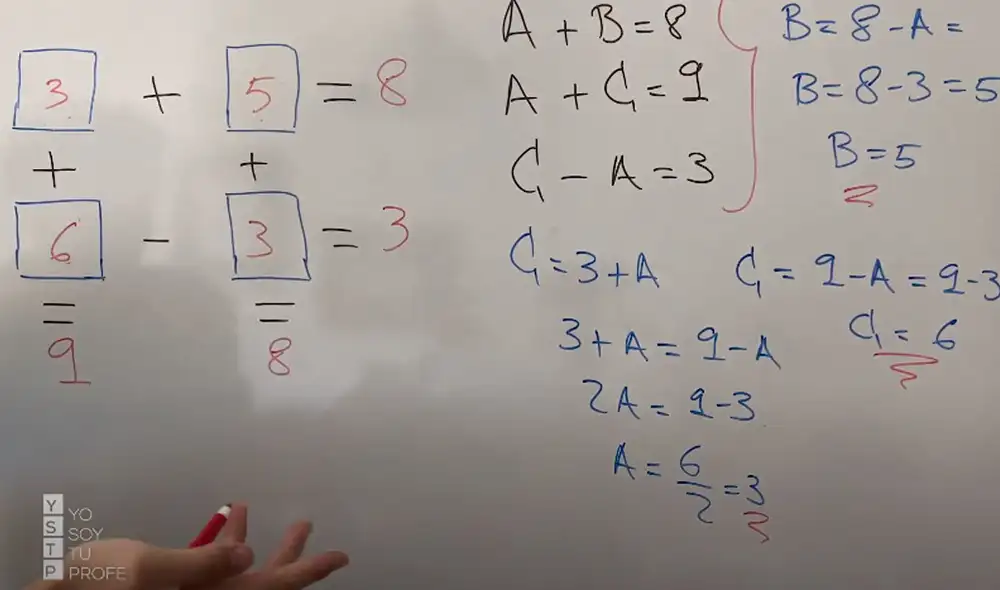 3 + 5 = 8
+ +
6 - 3 = 3
= =
9 8
A + B = 8
A + C = 9
C - A = 3
C = 3 + A
3 + A = 9 - A
2A = 9 - 3
A = 6/2 = 3
B = 8 - A =
B = 8 - 3 = 5
B = 5
C = 9 - A = 9 - 3
C = 6
YSTP
YO
SOY
TU
PROFE